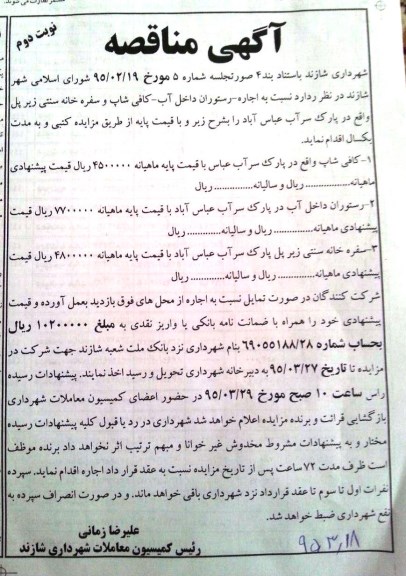 نوبت دوم
آگهی مناقصه
شهرداری شازند باستناد بند۴ صورتجلسه شماره ۵ مورخ ۹۵/۰۲/۱۹ شورای اسلامی شهر
شازند در نظر دارد نسبت به اجاره-رستوران داخل آب-کافی شاپ و سفره خانه سنتی زیر پل
واقع در پارک سرآب عباس آباد را بشرح زیر و با قیمت پایه از طریق مزایده کتبی و به مدت
یکسال اقدام نماید.
۱-کافی شاپ واقع در پارک سرآب عباس با قیمت پایه ماهیانه ۴۵۰۰۰۰۰ ریال قیمت پیشنهادی
ماهیانه................ ریال و سالیانه.............. ریال
۲-رستوران داخل آب در پارک سرآب عباس آباد با قیمت پایه ماهیانه ۷۷۰۰۰۰۰ ریال قیمت
پیشنهادی ماهیانه.............. ریال و سالیانه............ ریال
۳-سفره خانه سنتی زیر پل پارک سرآب عباس آباد با قیمت پایه ماهیانه ۴۸۰۰۰۰۰ ریال قیمت
پیشنهادی ماهیانه.............. ریال و سالیانه............ ریال
شرکت کنندگان در صورت تمایل نسبت به اجاره از محل های فوق بازدید بعمل آورده و قیمت
پیشنهادی خود را همراه با ضمانت نامه بانکی یا واریز نقدی به مبلغ ۱۰۲۰۰۰۰۰ ریال
بحساب شماره ۶۹۰۵۵۱۸۸/۲۸ بنام شهرداری نزد بانک ملت شعبه شازند جهت شرکت در
مزایده تا تاریخ ۹۵/۰۳/۲۷ به دبیرخانه شهرداری تحویل و رسید اخذ نمایند. پیشنهادات رسیده
راس ساعت ۱۰ صبح مورخ ۹۵/۰۳/۲۹ در حضور اعضای کمیسیون معاملات شهرداری
بازگشایی قرائت و برنده مزایده اعلام خواهد شد شهرداری در رد یا قبول کلیه پیشنهادات رسیده
مختار و به پیشنهادات مشروط مخدوش غیر خوانا و مبهم ترتیب اثر نخواهد داد برنده موظف
است ظرف مدت ۷۲ ساعت پس از تاریخ مزایده نسبت به عقد قرار داد اجاره اقدام نماید. سپرده
نفرات اول تا سوم تا عقد قرارداد نزد شهرداری باقی خواهد ماند. و در صورت انصراف سپرده به
نفع شهرداری ضبط خواهد شد.
علیرضا زمانی
رئیس کمیسیون معاملات شهرداری شازند
۹۵،۳،۱۸